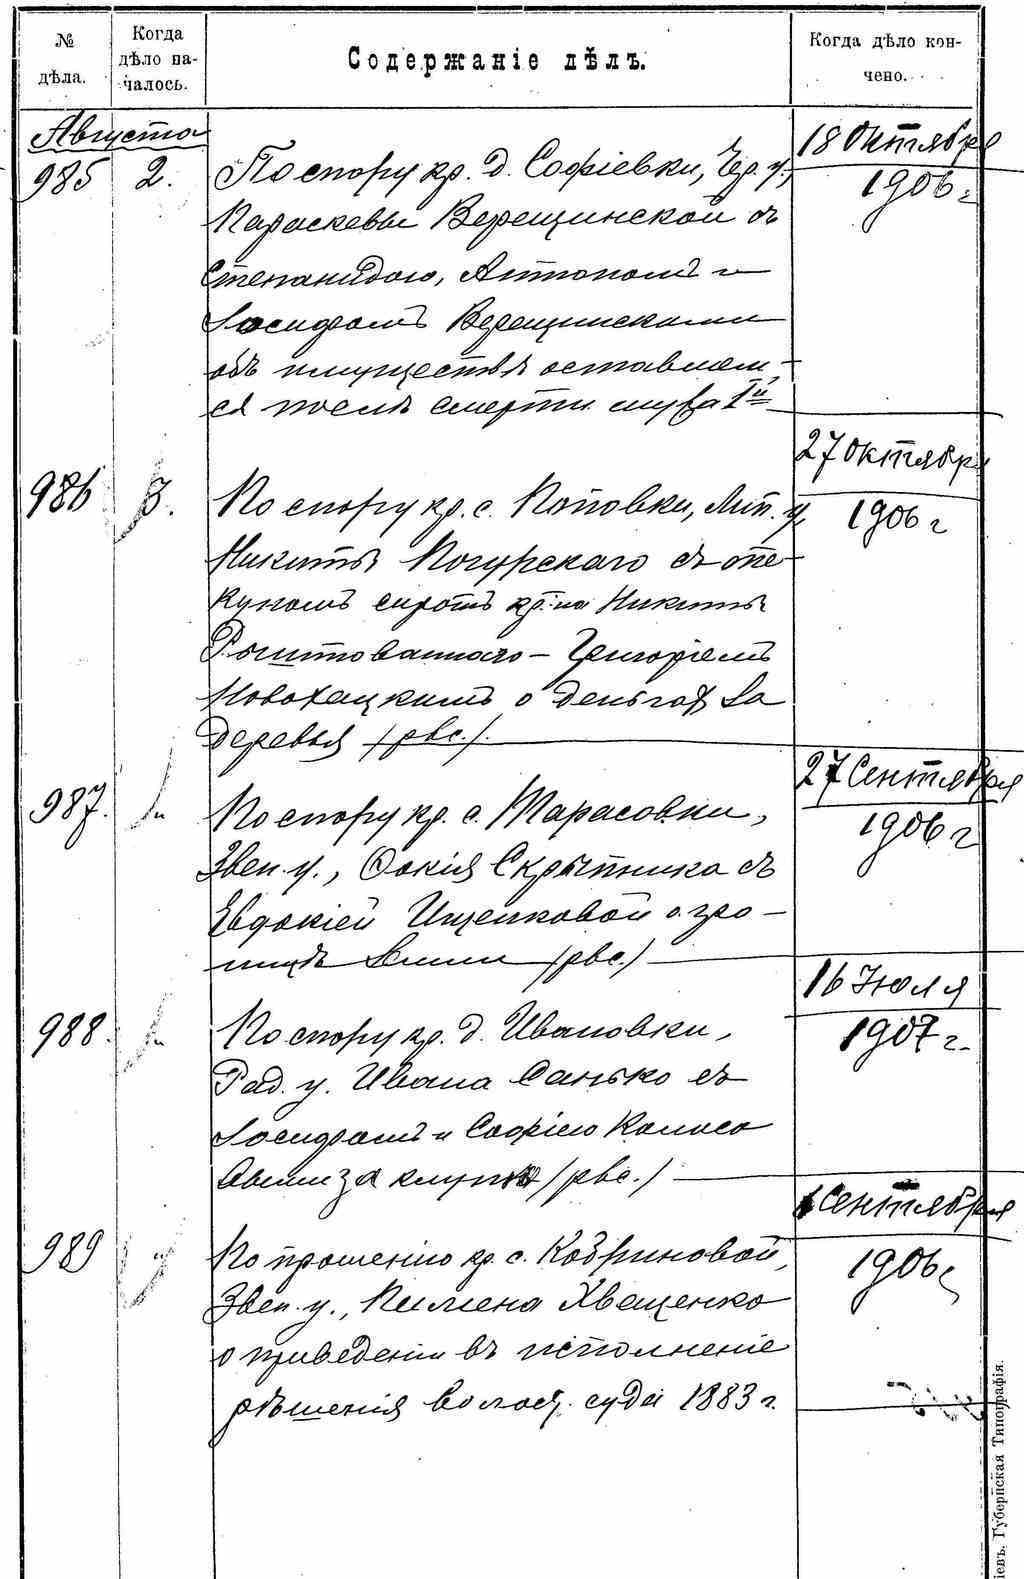 № дѣла.
Когда дѣло началось.
Содержаніе дѣлъ.
Когда дѣло кончено.
Августа
985 2. По спору кр. д. Софіевки, Чер. у.,
Параскевы Верещинской съ
Степанидою, Антономъ и
Іосифомъ Верещинскими
объ имуществѣ оставшем-
ся послѣ смерти мужа 1й
18 Октября
1906 г
986 3. По спору кр. с. Поповки, Лип. у.
Никиты Погурскаго съ опе-
куномъ сиротъ кр-на Никиты
Григоріемъ
о деньгах за
деревья /рвс./.
27 Октября
1906 г
987. По спору кр. с. Тарасовки,
Звен. у., Фокія Скрыпника съ
Евдокіей Ищенковой о гра-
ницѣ земли /рвс./
27 Сентября
1906 г
988. По спору кр. д. Ивановки,
Рад. у. Ивана Санько съ
Іосифомъ и Софіею Колисо
выми за клуню /рвс./
16 Июля
1907 г.
989 По прошенію кр. с. Кобриновой,
Звен. у., Пимена Хвещенко
о приведеніи въ исполненіе
рѣшенія волост. суда 1883 г.
1 Сентября
1906 г
іевъ. Губернская Типографія.